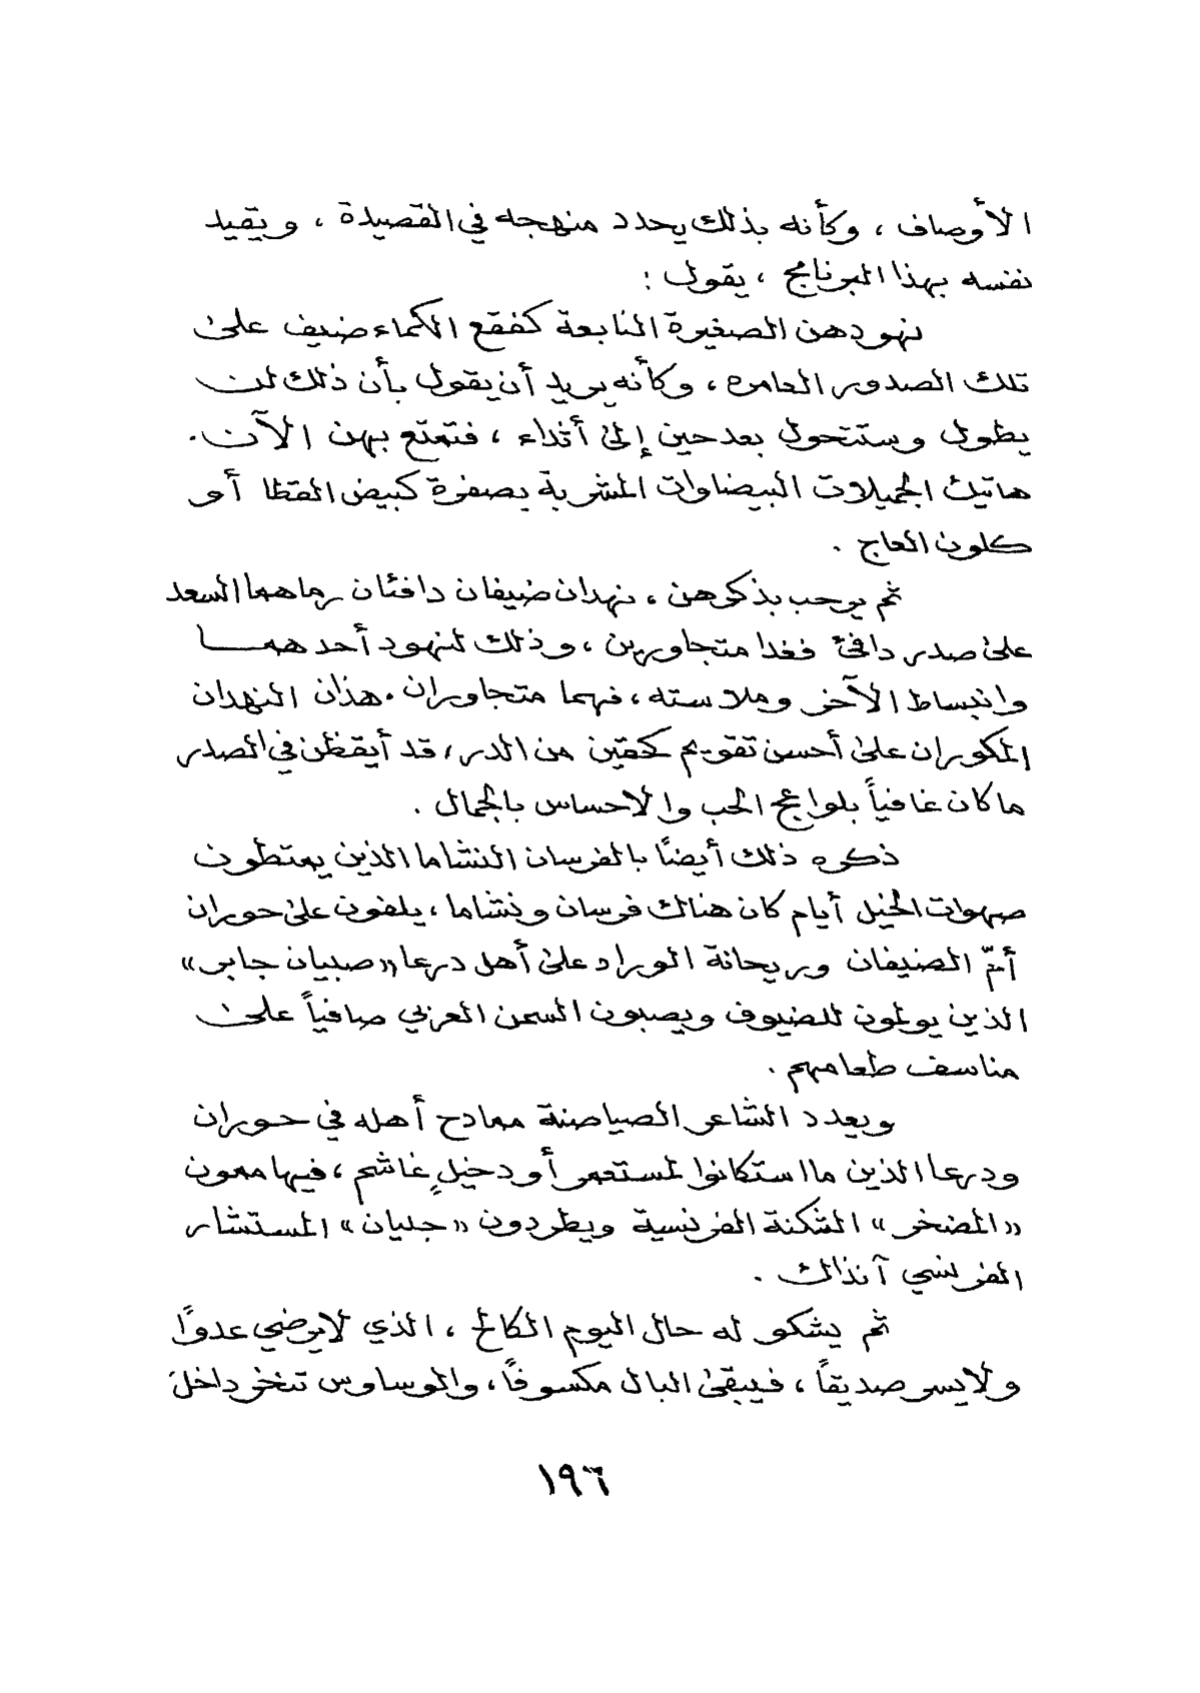 الأوصاف ، وكأنه بذلك يحدد منهجه في القصيدة ، ويقيد
نفسه بهذا البرنامج ، يقول :
نهودهن الصغيرة النابعة كفقع الكماء ضيف على
تلك الصدور العامره ، وكأنه يريد أن يقول بأن ذلك لن
يطول وستتحول بعد حين إلى أثداء ، فتمتع بهن الآن .
هاتيك الجميلات البيضاوات المشربة بصفرة كبيض القطا أو
كلون العاج .
ثم يرحب بذكرهن ، نهدان ضيفان دافئان رماهما السعد
على صدر دافئ فغدا متجاورين ، وذلك لنهود أحدهما
وانبساط الآخر وملاسته ، فهما متجاوران . هذان النهدان
المكوران على أحسن تقويم كحقين من الدر ، قد أيقظن في الصدر
ما كان غافياً بلواعج الحب والاحساس بالجمال .
ذكره ذلك أيضًا بالفرسان النشاما الذين يمتطون
صهوات الخيل أيام كان هناك فرسان ونشاما ، يلفون على حوران
أمّ الضيفان وريحانة الوراد على أهل درعا «صبيان جابر»
الذين يولمون للضيوف ويصبون السمن العربي صافياً على
مناسف طعامهم .
ويعدد الشاعر الصياصنة ممادح أهله في حوران
ودرعا الذين ما استكانوا لمستعمر أو دخيلٍ غاشم ، فيهامعون
«المضخر» الثكنة الفرنسية ويطردون «جليان» المستشار
الفرنسي آنذاك .
ثم يشكو له حال اليوم الكالح ، الذي لا يرضي عدوًا
ولا يسر صديقاً ، فيبقى البال مكسوفًا ، والوساوس تنخر داخل
١٩٦